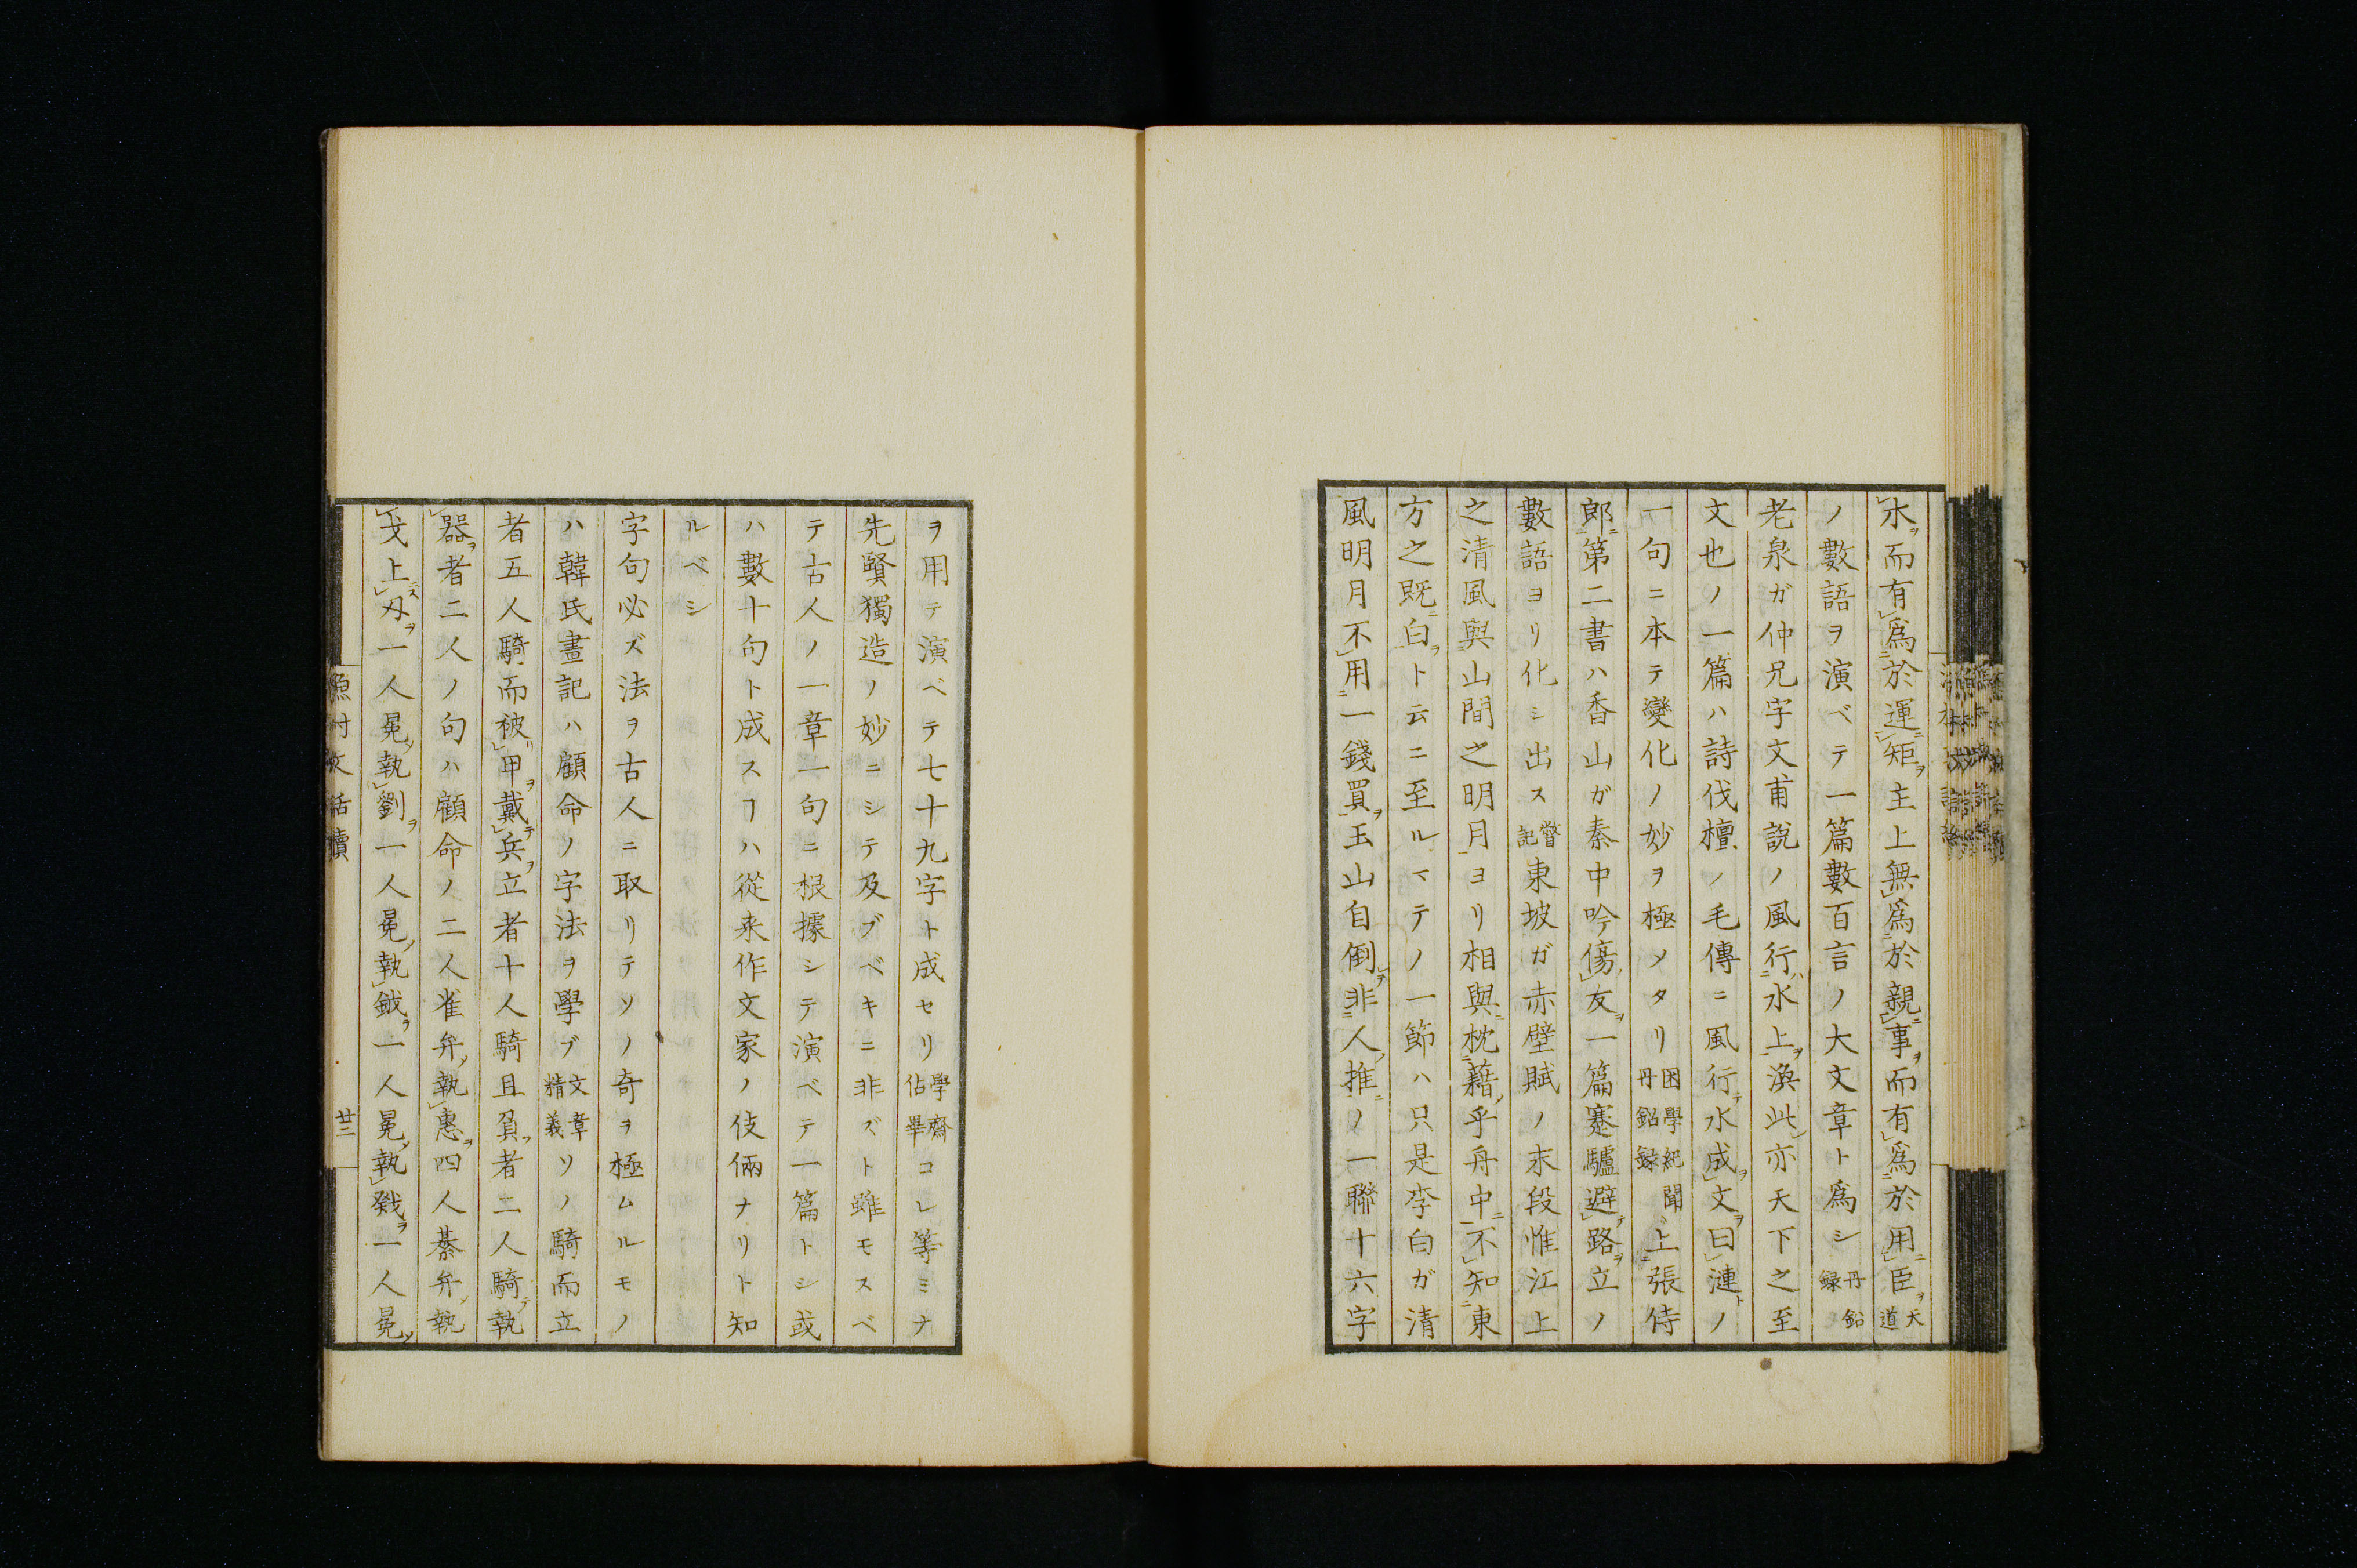 水ヲ而有レ爲二於運一レ矩ヲ主上無レ爲二於親一レ事ヲ而有レ爲二於用一レ臣ヲ天道
ノ數語ヲ演ベテ一篇數百言ノ大文章ト爲シ丹鉛錄
老泉ガ仲兄字文甫說ノ風行二水上一ヲ渙此レ亦天下之至
文也ノ一篇ハ詩伐檀ノ毛傳ニ風行テ水成レ文ヲ曰レ漣トノ
一句ニ本テ變化ノ妙ヲ極メタリ困學紀聞丹鉛錄上二張侍
郎一第二書ハ香山ガ秦中吟傷レ友ヲ一篇蹇驢避レ路ヲ立ノ
數語ヨリ化シ出ス甞記東坡ガ赤壁賦ノ末段惟江上
之清風與山間之明月ヨリ相與ニ枕藉乎舟中ニ不レ知東
方之既白ヲト云ニ至ルマテノ一節ハ只是李白ガ清
風明月不レ用二一錢買一ヲ玉山自倒テ非二人ノ推一ニノ一聯十六字
ヲ用テ演ベテ七十九字ト成セリ學齋佔畢コレ等ミナ
先賢獨造ノ妙ニシテ及ブベキニ非ズト雖モスベ
テ古人ノ一章一句ニ根據シテ演ベテ一篇トシ或
ハ數十句ト成スヿハ從来作文家ノ伎倆ナリト知
ルベシ
字句必ズ法ヲ古人ニ取リテソノ奇ヲ極ムルモノ
ハ韓氏畫記ハ顧命ノ字法ヲ學ブ文章精義ソノ騎而立
者五人騎而被レ甲ヲ戴レ兵ヲ立者十人騎且負者二人騎テ執
レ器ヲ者二人ノ句ハ顧命ノ二人雀弁執レ惠ヲ四人綦弁執
レ戈上レ刄ヲ一人冕執レ劉ヲ一人冕執レ鉞ヲ一人冕執レ戣ヲ一人冕
漁村文話續
廿二